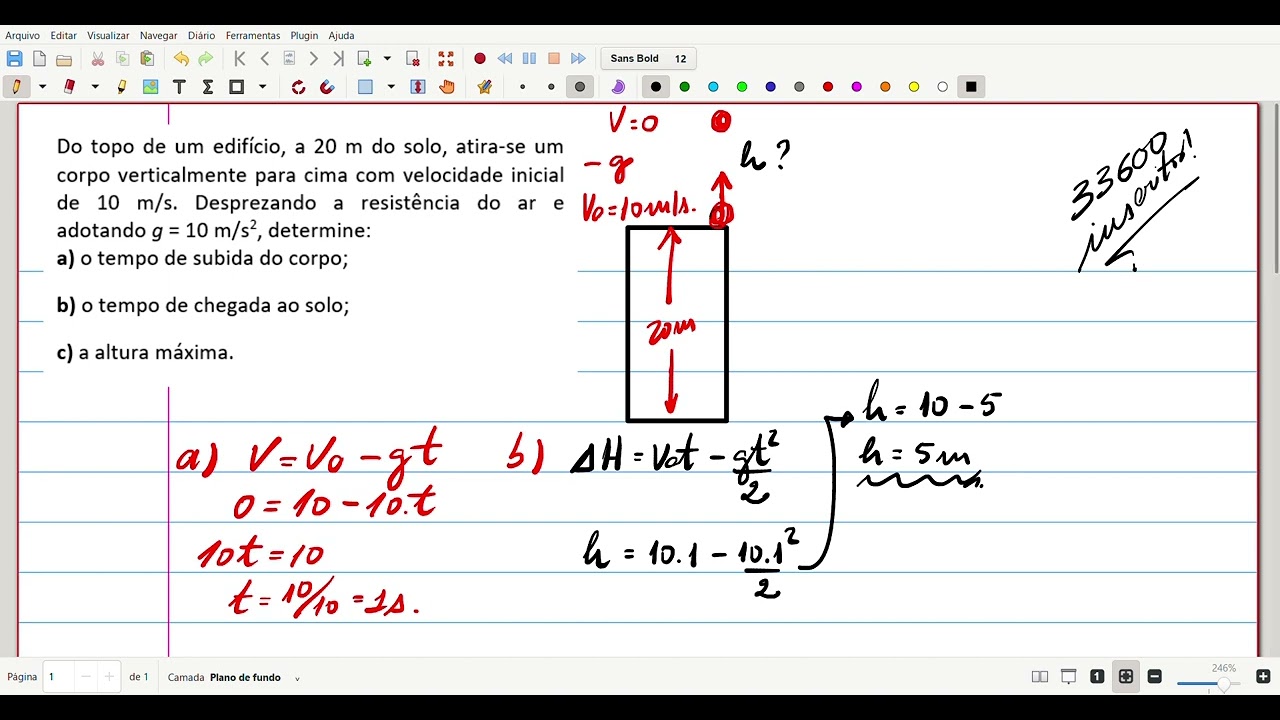 Arquivo Editar Visualizar Navegar Diário Ferramentas Plugin Ajuda
Sans Bold 12
Do topo de um edifício, a 20 m do solo, atira-se um
corpo verticalmente para cima com velocidade inicial
de 10 m/s. Desprezando a resistência do ar e
adotando g = 10 m/s², determine:
a) o tempo de subida do corpo;
b) o tempo de chegada ao solo;
c) a altura máxima.
V=0
-g
h?
V₀=10m/s.
20m
33600
inscritos!
a) V=V₀-gt
0=10-10.t
10t=10
t=10/10=1s.
b) ΔH=V₀t-gt²/2
h=10.1-10.1²/2
h=10-5
h=5m
Página 1 de 1 Camada Plano de fundo
246%